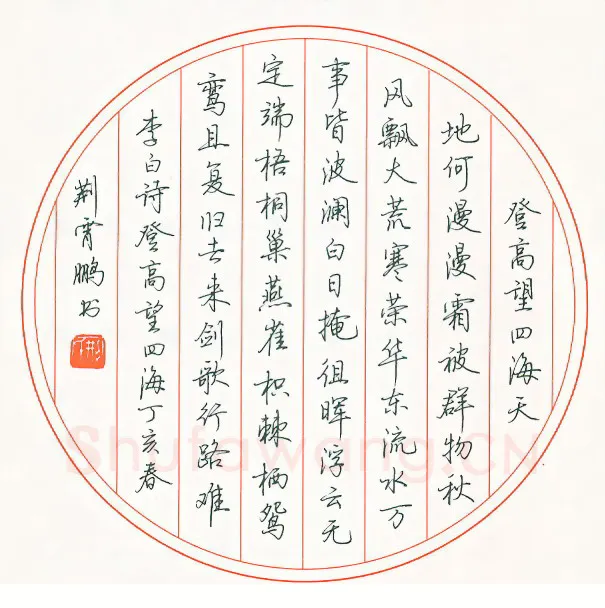 登高望四海天
地何漫漫霜被群物秋
风飘大荒寒荣华东流水万
事皆波澜白日掩徂晖浮云无
定端梧桐巢燕雀枳棘栖鸳
鸾且复归去来剑歌行路难
李白诗登高望四海丁亥春
荆霄鹏书
荆
Shufawang.CN